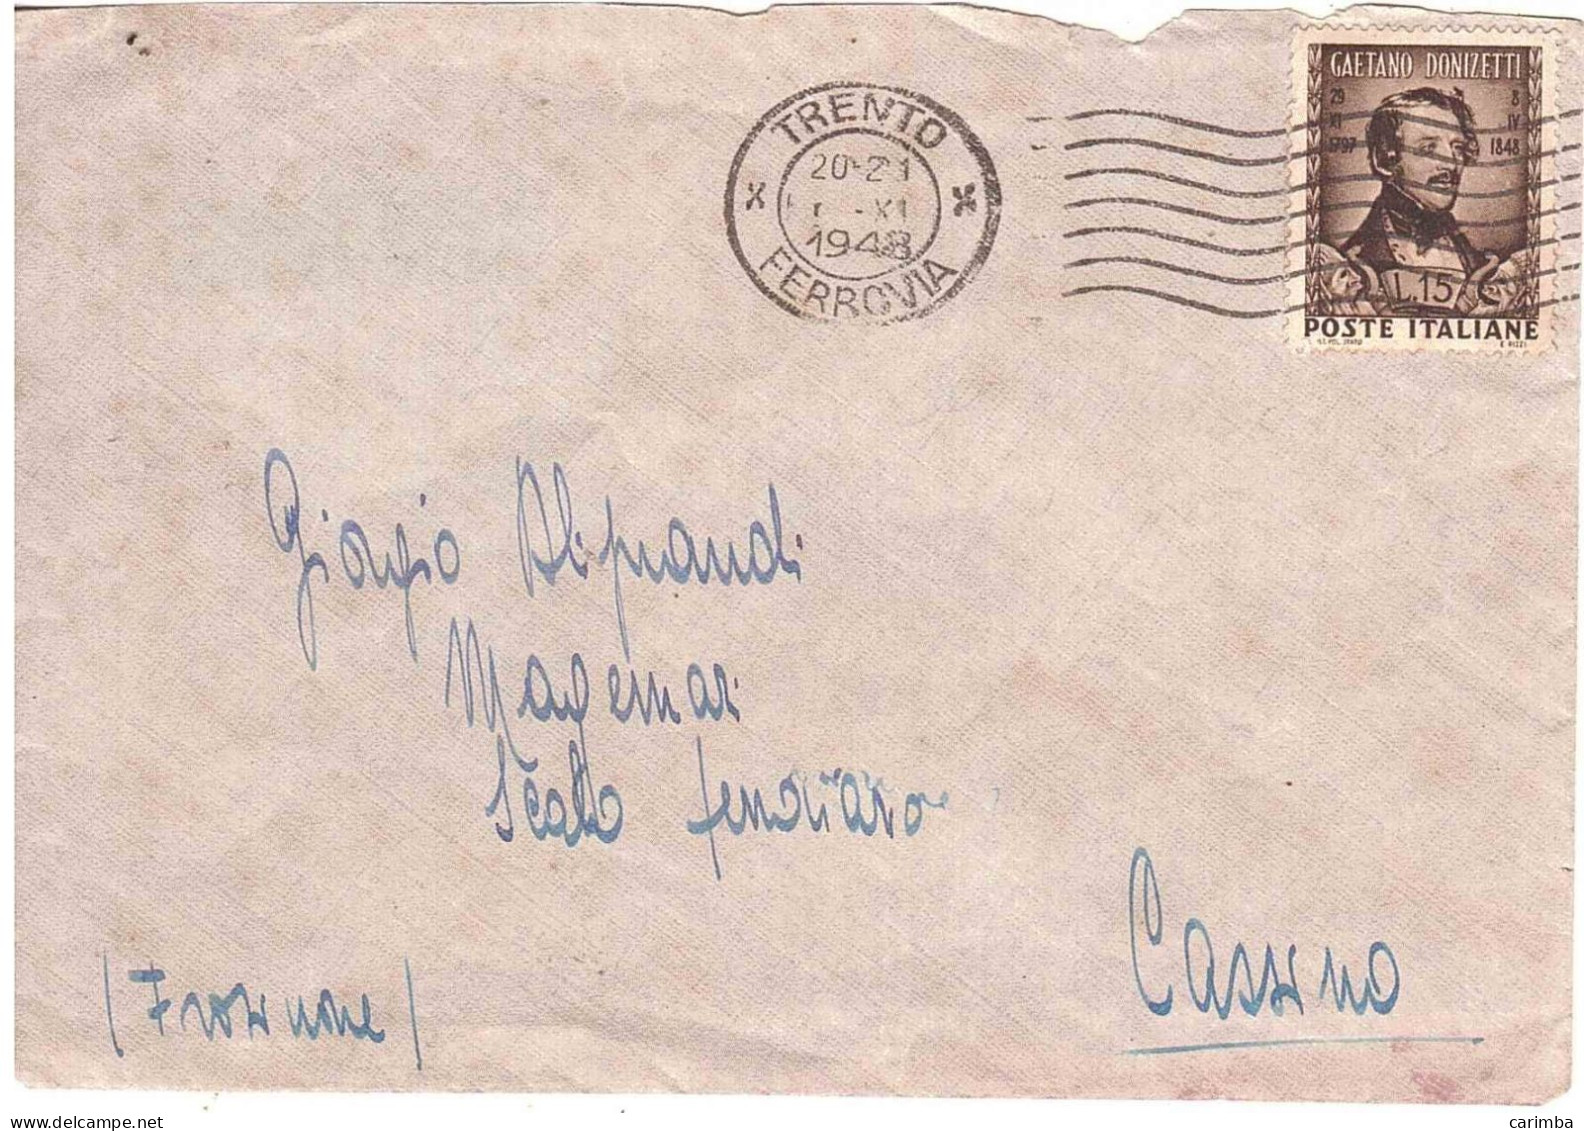 TRENTO
20-21
XI
1948
FERROVIA
GAETANO DONIZETTI
29 8
XI IV
1797 1848
L.15
POSTE ITALIANE
Giorgio Aliprandi
Magemar
Scalo ferroviario
Cassino
(Frosinone)
www.delcampe.net
carimba